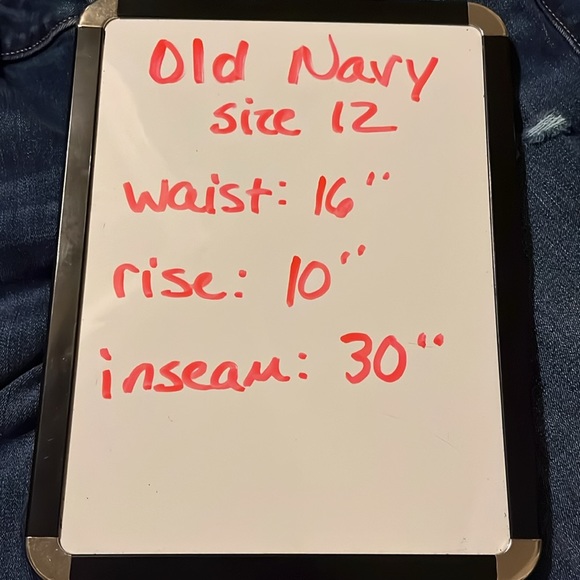 Old Navy
size 12
waist: 16"
rise: 10"
inseam: 30"